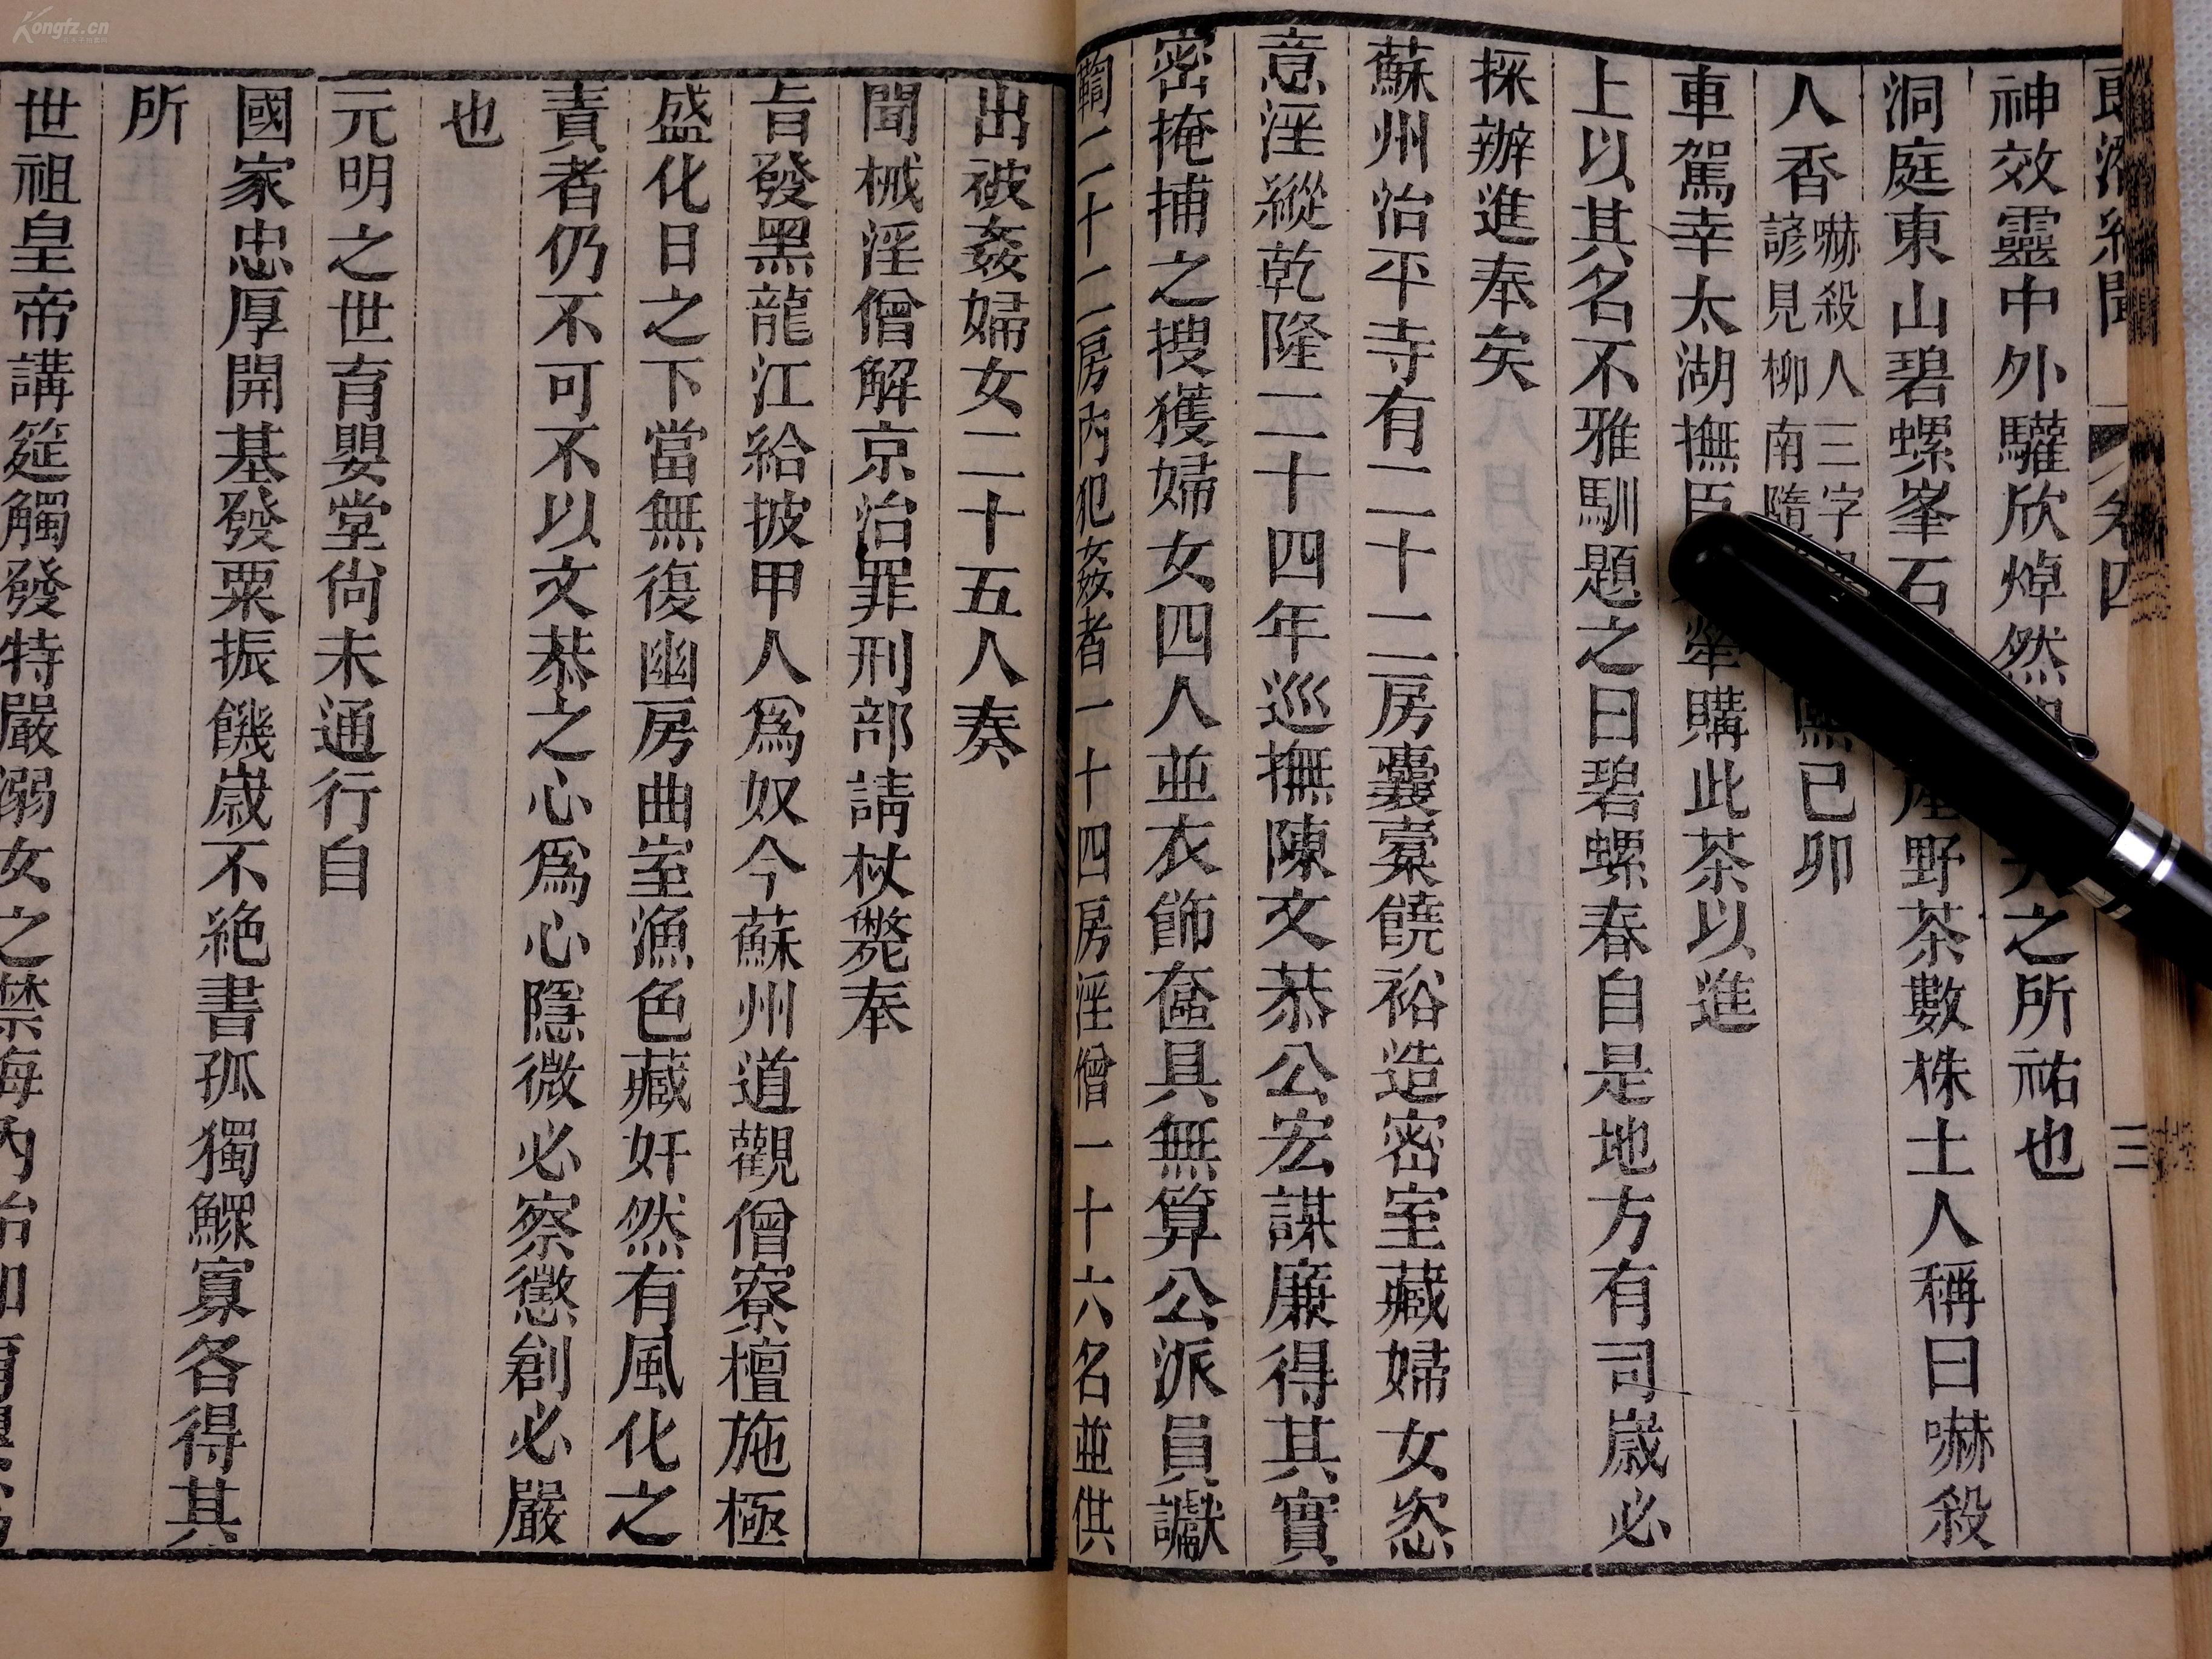 郎潛紀聞 卷四 三
神效靈中外驩欣焯然 之所祐也
洞庭東山碧螺峯石 產野茶數株土人稱曰嚇殺
人香 嚇殺人三字 諺見柳南隨 熙己卯
車駕幸太湖撫臣 犖購此茶以進
上以其名不雅馴題之曰碧螺春自是地方有司歲必
採辦進奉矣
蘇州治平寺有二十二房囊橐饒裕造密室藏婦女恣
意淫縱乾隆二十四年巡撫陳文恭公宏謀廉得其實
密掩捕之搜獲婦女四人並衣飾奩具無算公派員讞
鞫二十二房內犯姦者一十四房淫僧一十六名並供
出被姦婦女二十五人奏
聞械淫僧解京治罪刑部請杖斃奉
旨發黑龍江給披甲人爲奴今蘇州道觀僧寮檀施極
盛化日之下當無復幽房曲室漁色藏奸然有風化之
責者仍不可不以文恭之心爲心隱微必察懲創必嚴
也
元明之世育嬰堂尙未通行自
國家忠厚開基發粟振饑歲不絕書孤獨鰥寡各得其
所
世祖皇帝講筵觸發特嚴溺女之禁海內始知
Kongfz.cn